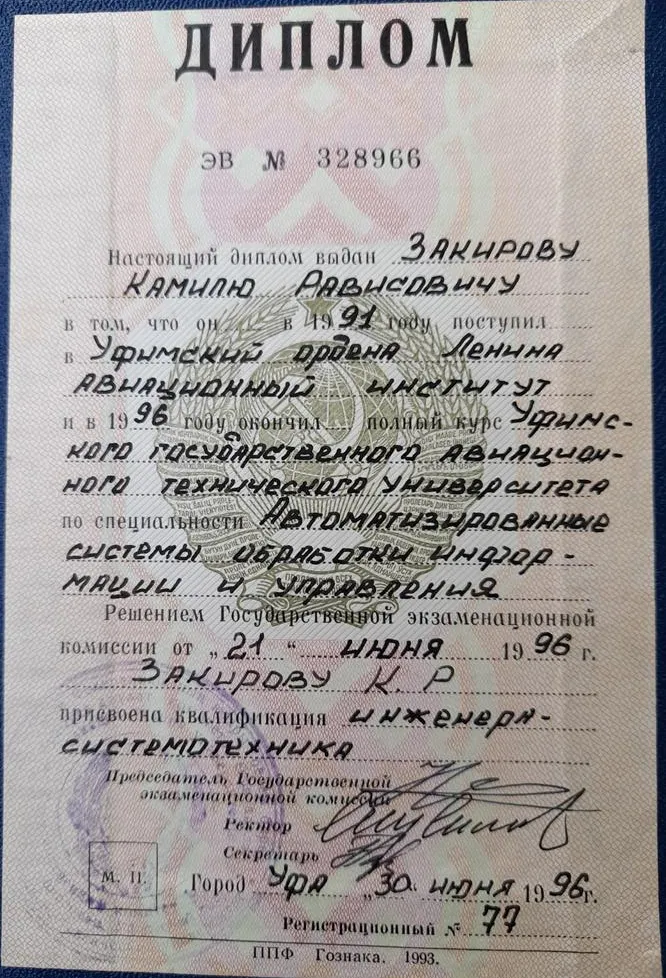 ДИПЛОМ
ЭВ № 328966
Настоящий диплом выдан Закирову
Камилю Рависовичу
в том, что он в 1991 году поступил
в Уфимский ордена Ленина
авиационный институт
и в 1996 году окончил полный курс Уфимс-
кого государственного авиацион-
ного технического университета
по специальности Автоматизированные
системы обработки инфор-
мации и управления
Решением Государственной экзаменационной
комиссии от „21“ июня 1996 г.
Закирову К. Р
присвоена квалификация инженера-
системотехника
Председатель Государственной
экзаменационной комиссии
Ректор
Секретарь
М. П.
Город Уфа „30 июня 1996г.
Регистрационный № 77
ППФ Гознака. 1993.